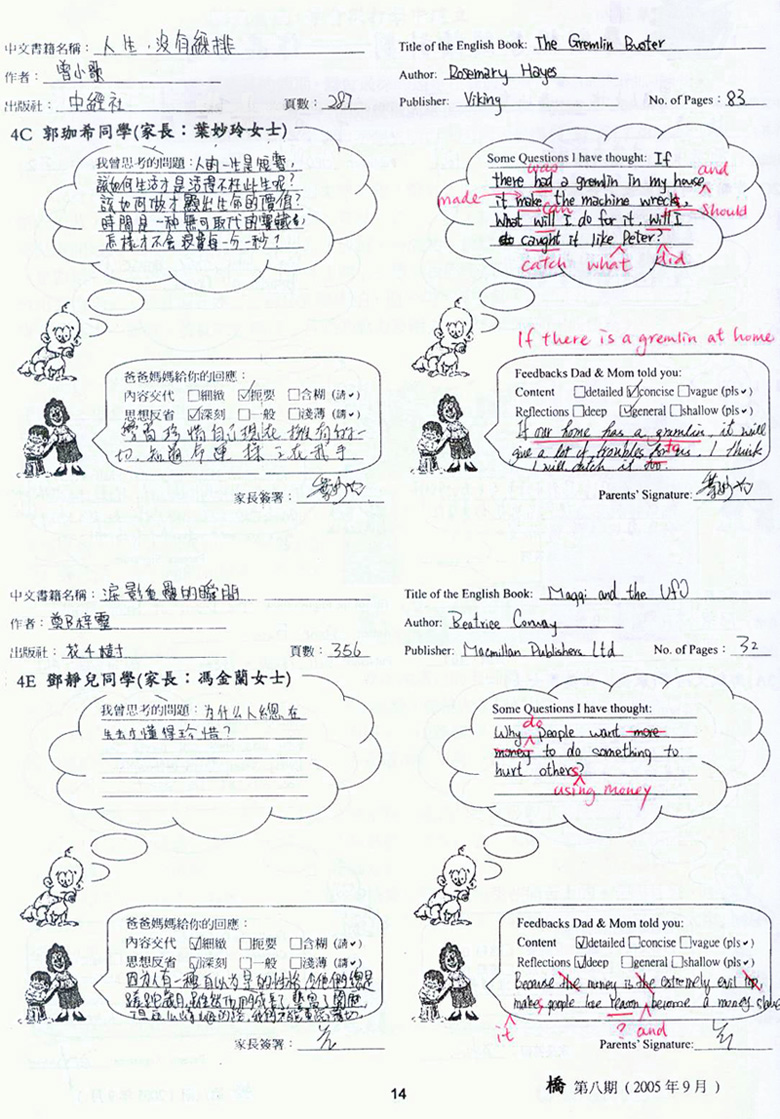 中文書籍名稱：人生，沒有綵排
作者：曾小歌
出版社：中經社 頁數：287
Title of the English Book: The Gremlin Buster
Author: Rosemary Hayes
Publisher: Viking No. of Pages: 83
4C 郭珈希同學(家長：葉妙玲女士)
我曾思考的問題：人的一生是短暫，
該如何生活才是活得不枉此生呢？
該如何做才顯出生命的價值？
時間是一種無可取代的寶藏，
怎樣才不會浪費每一分一秒？
Some Questions I have thought: If
was and
there had a gremlin in my house,
made it make the machine wreck,
can should
What will I do for it, will I
caught it like Peter?
catch what did
If there is a gremlin at home
爸爸媽媽給你的回應：
內容交代 □細緻 ☑扼要 □含糊 (請✔)
思想反省 ☑深刻 □一般 □淺薄 (請✔)
學習珍惜自己現在擁有的一
切，知道命運 在我手
家長簽署：
Feedbacks Dad & Mom told you:
Content □detailed ☑concise □vague (pls✔)
Reflections □deep ☑general □shallow (pls✔)
If our home has a gremlin, it will
give a lot of troubles for us. I think
to
I will catch it too.
Parents' Signature:
中文書籍名稱：淚影重疊的瞬間
作者：鄭梓靈
出版社：花千樹 頁數：356
Title of the English Book: Maggi and the UFO
Author: Beatrice Conway
Publisher: Macmillan Publishers Ltd No. of Pages: 32
4E 鄧靜兒同學(家長：馮金蘭女士)
我曾思考的問題：为什么人總在
失去才懂得珍惜？
Some Questions I have thought:
do
Why people want more
money to do something to
hurt others?
using money
爸爸媽媽給你的回應：
內容交代 ☑細緻 □扼要 □含糊 (請✔)
思想反省 ☑深刻 □一般 □淺薄 (請✔)
因為有一種自以為是的性格
家長簽署：
Feedbacks Dad & Mom told you:
Content ☑detailed □concise □vague (pls✔)
Reflections ☑deep □general □shallow (pls✔)
Because the money is the extremely evil
makes people lose reason become a money slave
it ? and
Parents' Signature:
14
橋 第八期 ( 2005 年 9 月 )